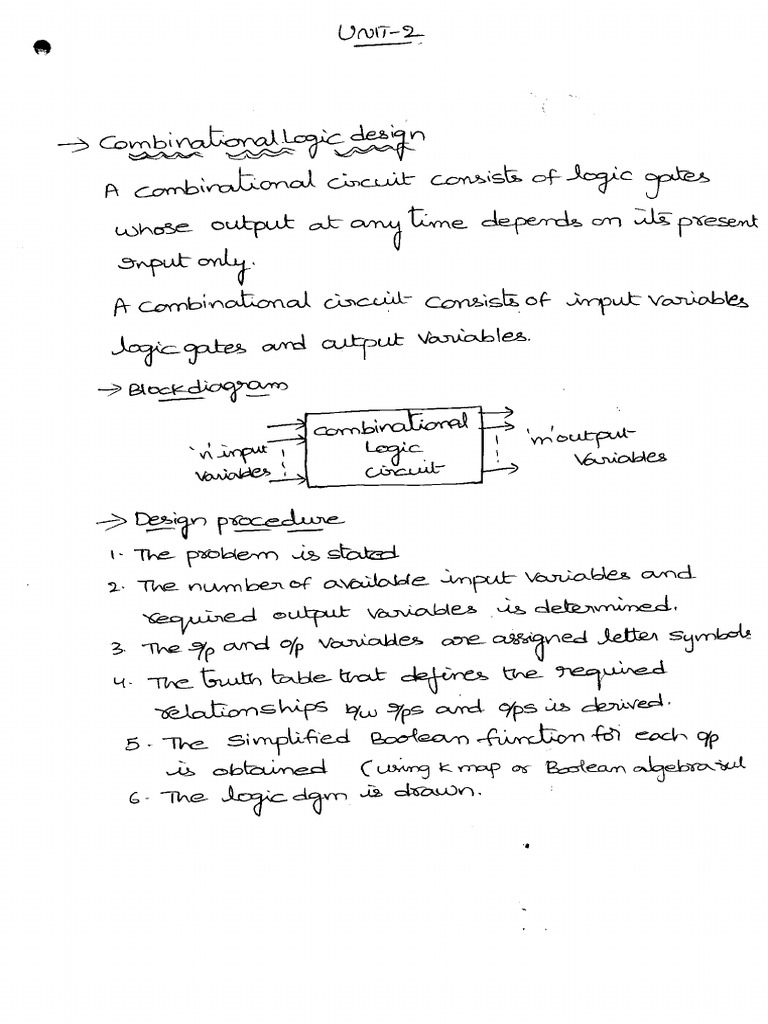 UNIT-2
→ Combinational Logic design
A combinational circuit consists of logic gates
whose output at any time depends on its present
input only.
A combinational circuit consists of input variables
logic gates and output variables.
→ Block diagram
'n' input
variables
combinational
Logic
circuit
'm' output
variables
→ Design procedure
1. The problem is stated
2. The number of available input variables and
required output variables is determined.
3. The i/p and o/p variables are assigned letter symbols
4. The truth table that defines the required
relationships b/w i/ps and o/ps is derived.
5. The simplified Boolean function for each o/p
is obtained (using k map or Boolean algebra rul
6. The logic dgm is drawn.